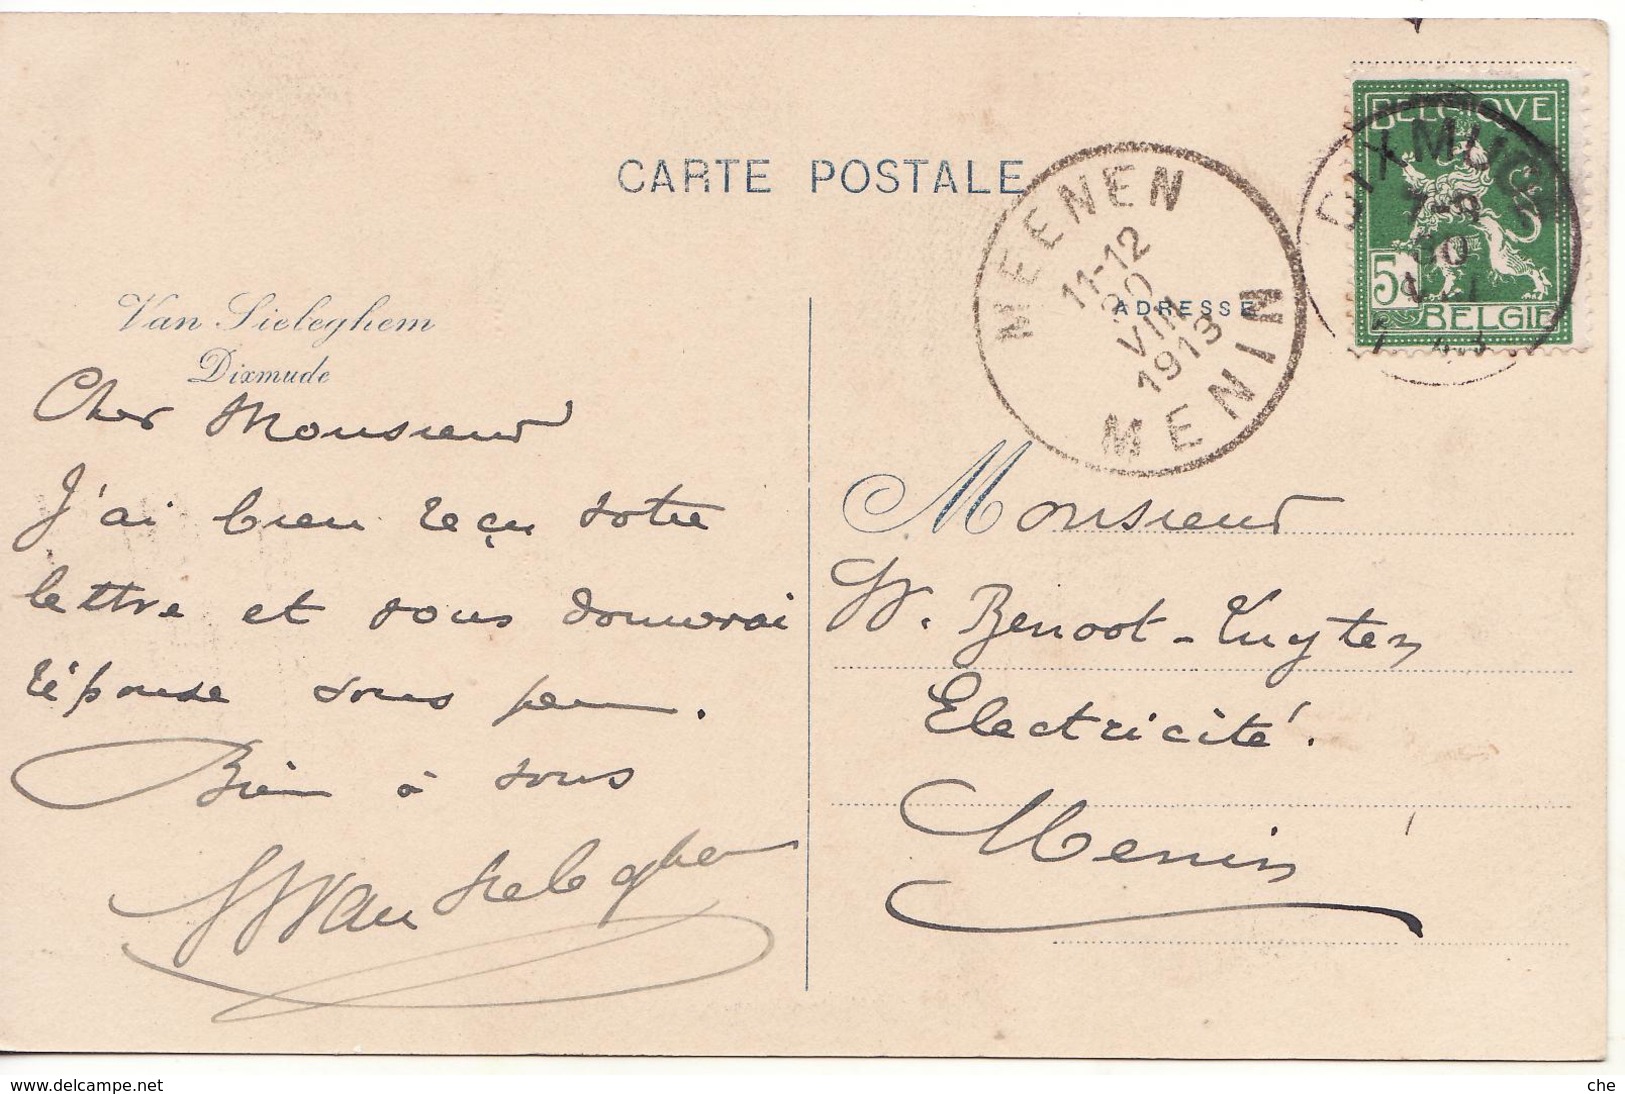 CARTE POSTALE
Van Sieleghem
Dixmude
Cher Monsieur
J'ai bien reçu votre
lettre et vous donnerai
réponse sous peu.
Bien à vous
Van Sieleghem
BELGIQUE
5
BELGIE
DIXMUDE
7-8
MEENEN
11-12
20
VIII
1913
MENIN
ADRESSE
Monsieur
W. Benoot-Tuyten
Electricité.
Menin
www.delcampe.net
che